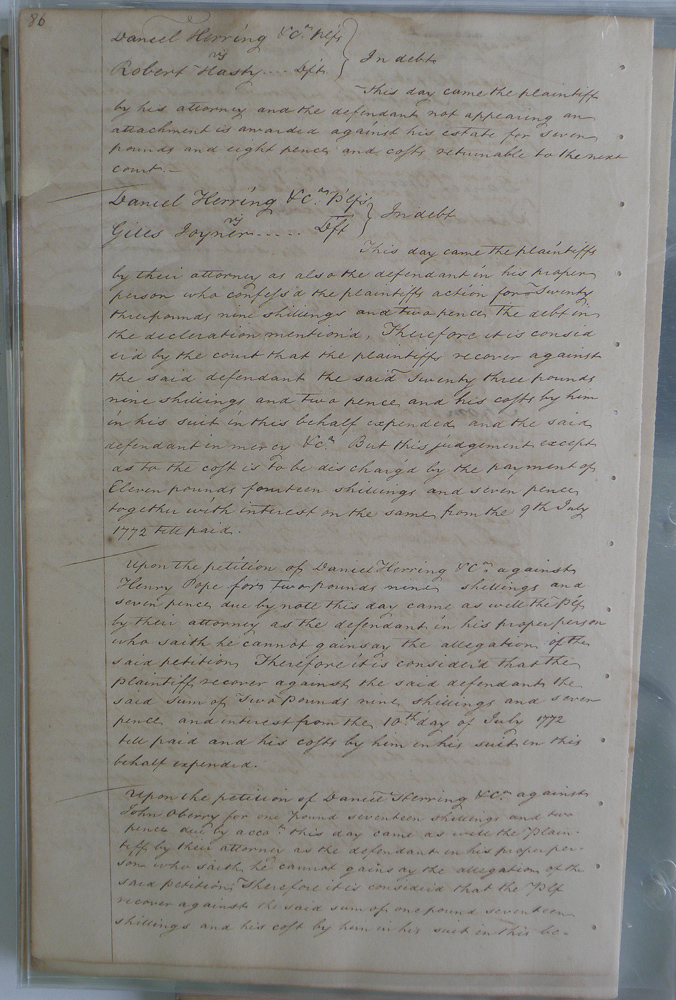 86
Daniel Herring &Co.m Plfs
vs
Robert Hasty.... Dft } In debt
This day came the plaintiff
by his attorney and the defendant not appearing an
attachment is awarded against his estate for seven
pounds and eight pence and costs returnable to the next
court.
Daniel Herring &Co.m Plfs
vs
Giles Joyner..... Dft } In debt
This day came the plaintiffs
by their attorney as also the defendant in his proper
person who confess'd the plaintiffs action for Twenty
three pounds nine shillings and two pence the debt in
the decleration mention'd, Therefore it is consid
er'd by the court that the plaintiffs recover against
the said defendant the said Twenty three pounds
nine shillings and two pence and his costs by him
in his suit in this behalf expended and the said
defendant in mercy &c.a But this judgement except
as to the cost is to be discharg'd by the payment of
Eleven pounds fourteen shillings and seven pence
together with interest on the same from the 9th July
1772 till paid.
Upon the petition of Daniel Herring &Co. against
Henry Pope for two pounds nine shillings and
seven pence due by note this day came as well the Plfs
by their attorney as the defendant in his proper person
who saith he cannot gainsay the allegation of the
said petition Therefore it is consider'd that the
plaintiff recover against the said defendant the
said sum of Two pounds nine shillings and seven
pence and interest from the 10th day of July 1772
till paid and his costs by him in his suit in this
behalf expended.
Upon the petition of Daniel Herring &Co.m against
John Oberry for one pound seventeen shillings and two
pence due by acco.t this day came as well the Plain-
tiffs by their attorney as the defendant in his proper per-
son who saith he cannot gainsay the allegation of the
said petition, Therefore it is consider'd that the Plf
recover against the said sum of one pound seventeen
shillings and his cost by him in his suit in this be-